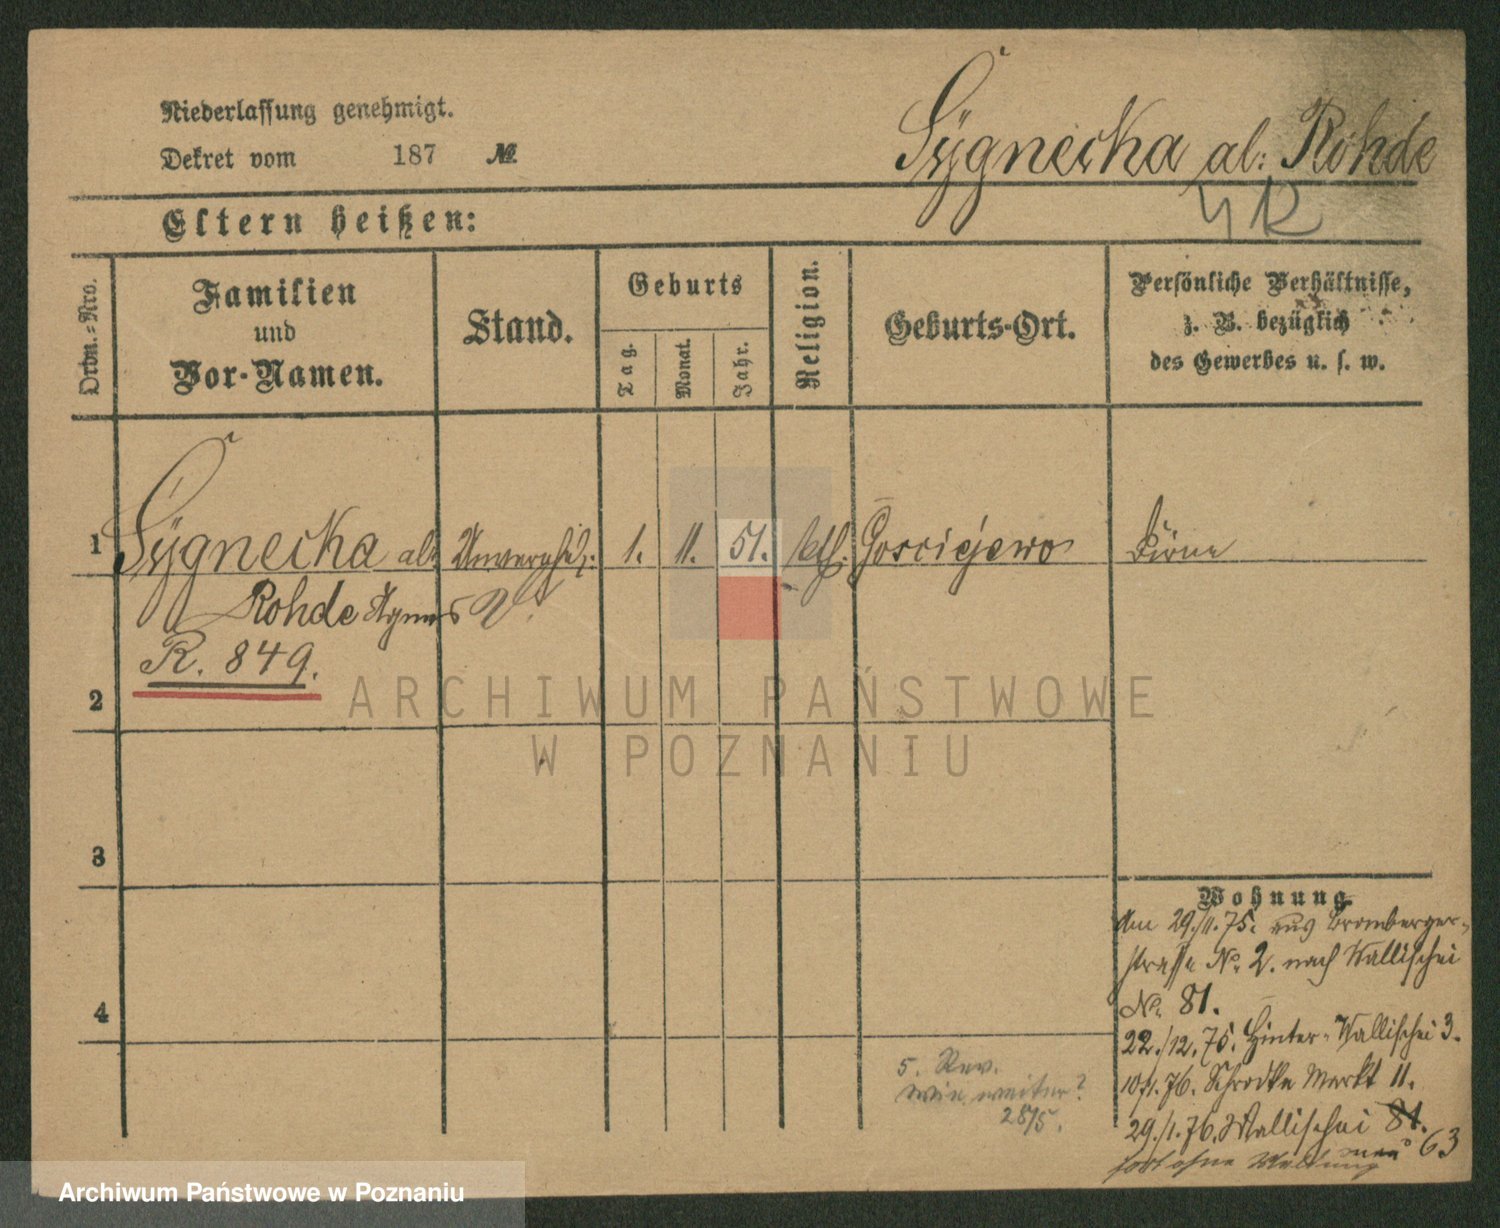 Niederlassung genehmigt.
Dekret vom 187 №
Sÿgnecka al: Rohde
Eltern heißen:
Ordn.-Nro.
Familien
und
Vor-Namen.
Stand.
Geburts
Tag.
Monat.
Jahr.
Religion.
Geburts-Ort.
Persönliche Verhältnisse,
z. B. bezüglich
des Gewerbes u. s. w.
1 Sÿgnecka als Unverehel: 1. 11. 51. kth. Gosciejewo Dirne
Rohde Agnes
R. 849.
2
ARCHIWUM PAŃSTWOWE
W POZNANIU
3
4
Wohnung.
Am 29./11.75. aus Bromberger-
strasse No. 2. nach Wallischei
No. 81.
22./12.75. Hinter-Wallischei 3.
10/1.76. Schrodka Markt 11.
29./1.76. Wallischei 81.
neu 63
fort ohne Meldung
5. Rev.
wie weiter?
28/5.
Archiwum Państwowe w Poznaniu